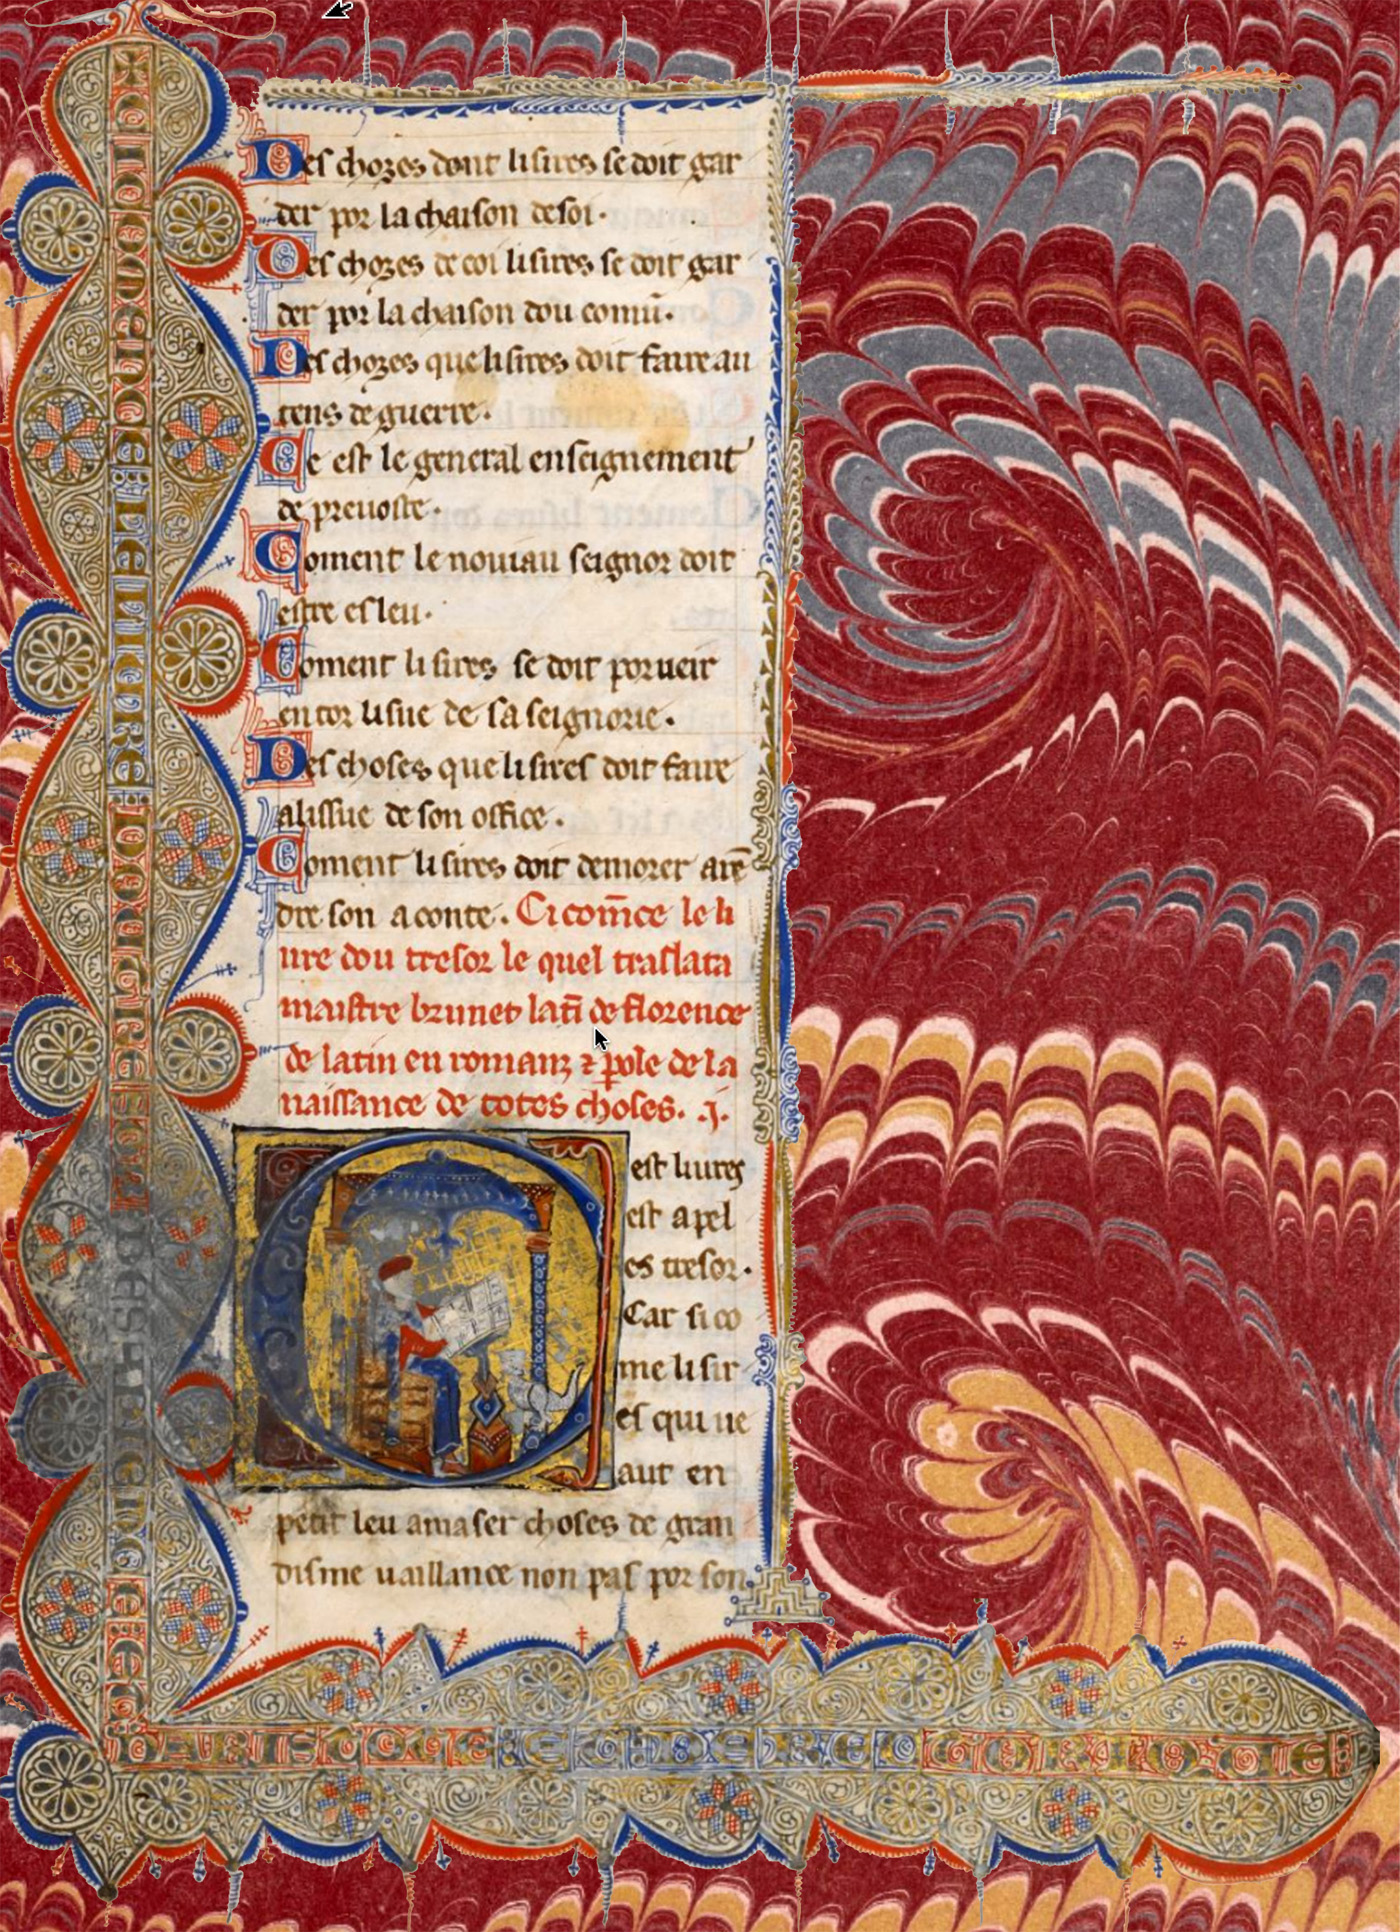 Des chozes dont li sires se doit gar
der por la chaison de soi.
Des chozes de coi li sires se doit gar
der por la chaison dou comũ.
Des chozes que li sires doit faire au
tens de guerre.
Ce est le general enseignement
de prevoste.
Coment le nouiau seignor doit
estre esleu.
Coment li sires se doit porueir
encor lisue de sa seignorie.
Des choses que li sires doit faire
alissue de son office.
Coment li sires doit demorer a rẽ
dre son aconte. Ci com̃ce le li
ure dou tresor le quel traslata
maistre brunet latĩ de florence
de latin en romanz ⁊ ꝑole de la
naissance de totes choses. .j.
est liures
est apel
es tresor.
Car si co
me li sir
es qui ue
aut en
petit leu amaser choses de gran
disme uaillance non pas por son